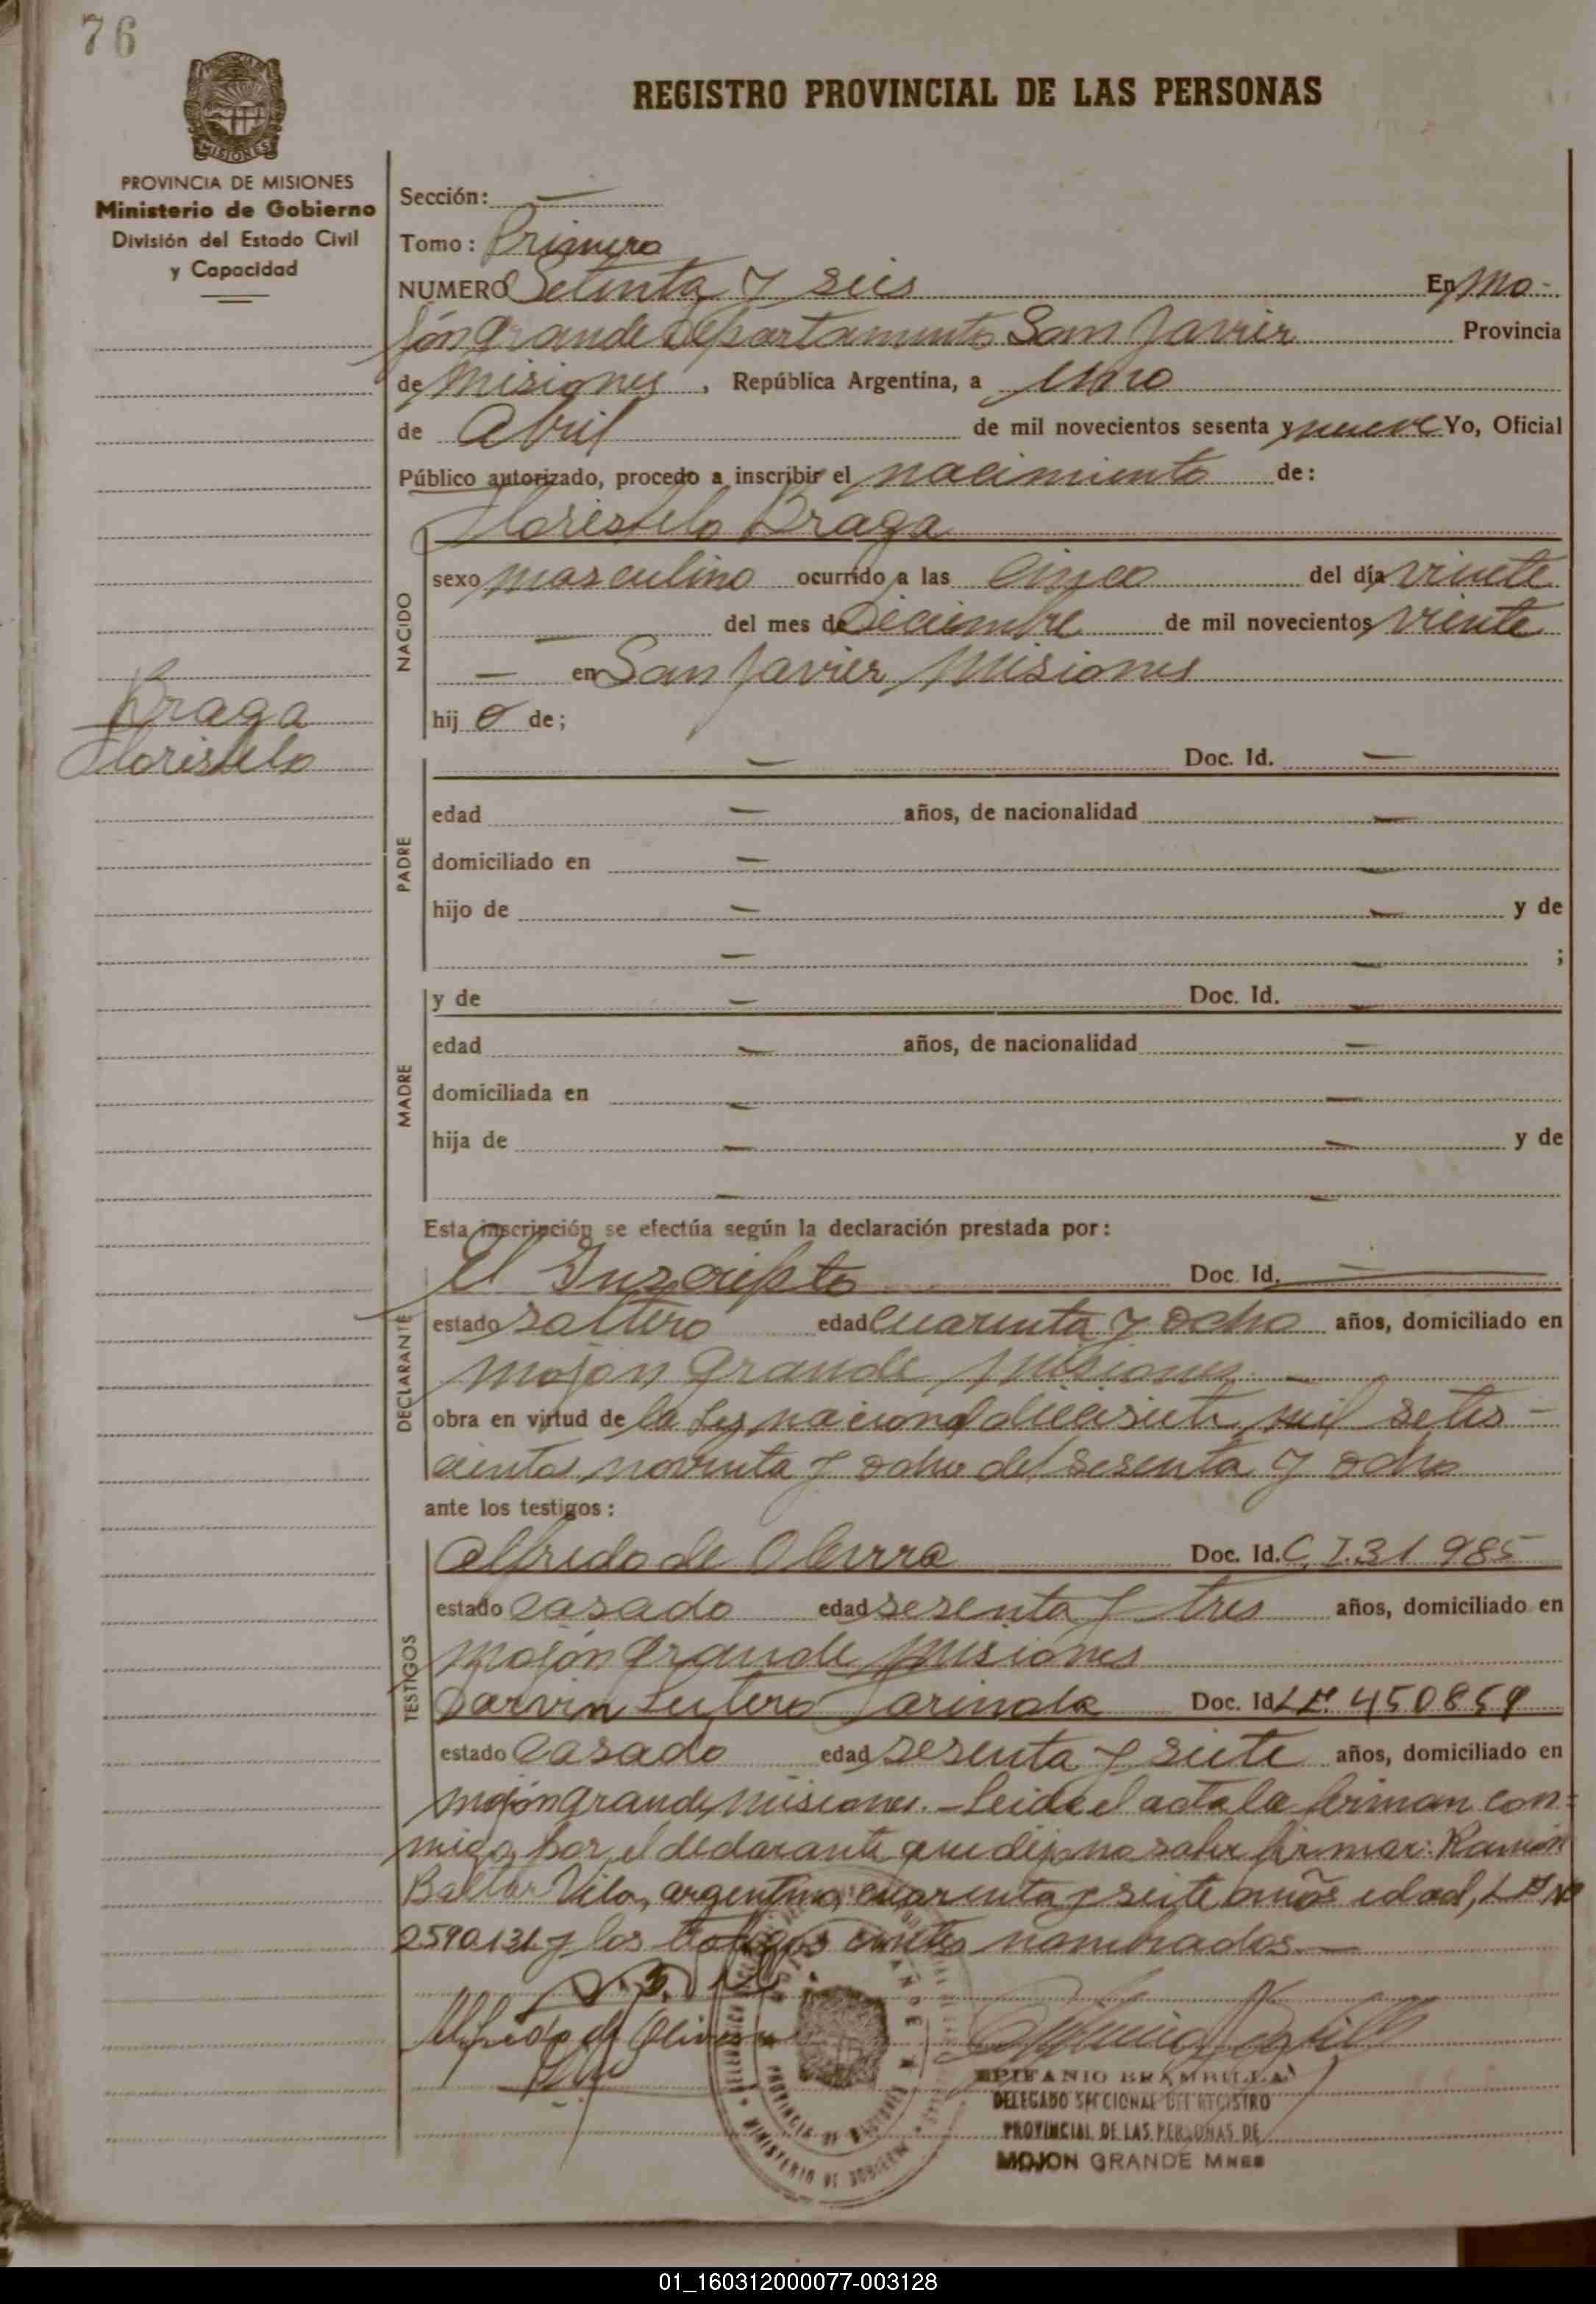 76
REGISTRO PROVINCIAL DE LAS PERSONAS
MISIONES
PROVINCIA DE MISIONES
Ministerio de Gobierno
División del Estado Civil
y Capacidad
Sección: —
Tomo: Primero
NUMERO Setenta y seis En Mo-
jón Grande Departamento San Javier Provincia
de Misiones, República Argentina, a uno
de Abril de mil novecientos sesenta y nueve Yo, Oficial
Público autorizado, procedo a inscribir el nacimiento de:
Floristelo Braga
NACIDO
sexo masculino ocurrido a las cinco del día viente
del mes de Deciembre de mil novecientos viente
— en San Javier Misiones
hij o de;
Braga
Floristelo
PADRE
— Doc. Id. —
edad — años, de nacionalidad —
domiciliado en — —
hijo de — — y de
— — ;
MADRE
y de — Doc. Id. —
edad — años, de nacionalidad —
domiciliada en — —
hija de — — y de
— —
Esta inscripción se efectúa según la declaración prestada por:
DECLARANTE
El Inscripto Doc. Id. —
estado soltero edad cuarenta y ocho años, domiciliado en
Mojon Grande Misiones —
obra en virtud de la Ley nacional diecisiete mil setes-
cientos noventa y ocho del sesenta y ocho
ante los testigos:
TESTIGOS
Alfredo de Oliveira Doc. Id. C.I. 31 985
estado casado edad sesenta y tres años, domiciliado en
Mojón Grande Misiones
Darvin Lutero Doc. Id. L.E. 450859
estado casado edad sesenta y siete años, domiciliado en
Mojón Grande, Misiones. — Leida el acta la firman con-
migo, por el declarante que dijo no saber firmar: Ramón
Vila, argentino, cuarenta y siete años edad, L E Nº
2590131 y los testigos nombrados —
Alfredo de
PROVINCIA DE MISIONES
MINISTERIO DE GOBIERNO
EPIFANIO BRAMBILLA
DELEGADO SECCIONAL DEL REGISTRO
PROVINCIAL DE LAS PERSONAS DE
MOJON GRANDE MNES
01_160312000077-003128